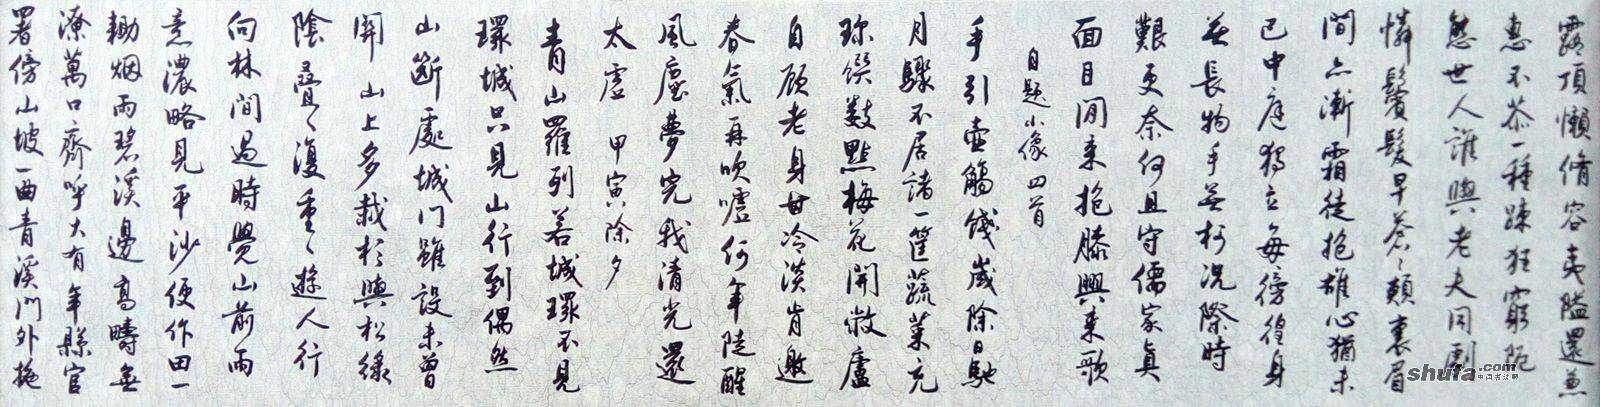 露頂懶脩容夷隘還兼
惠不恭一種疎狂窮阨
態世人誰與老夫同劇
憐鬢髮早蒼〻頰裏眉
間亦漸霜徒抱雄心猶未
已中庭獨立每徬徨身
無長物手無柯況際時
艱更奈何且守儒家真
面目閒來抱膝興來歌
自題小像四首
手引壺觴餞歲除日馳
月驟不居諸一筐蔬菜充
珍饌數點梅花開敝廬
自顧老身甘冷淡肯邀
春氣再吹噓何年陡醒
風塵夢完我清光還
太虛 甲寅除夕
青山羅列若城環不見
環城只見山行到偶然
山斷處城門雖設未曾
關山上多栽杉與松綠
陰疊〻復重〻遊人行
向林間過時覺山前雨
意濃略見平沙便作田一
鋤烟雨碧溪邊高疇無
潦萬口齊呼大有年縣官
署傍山坡一曲青溪門外拖
shufa.com
中国书法网